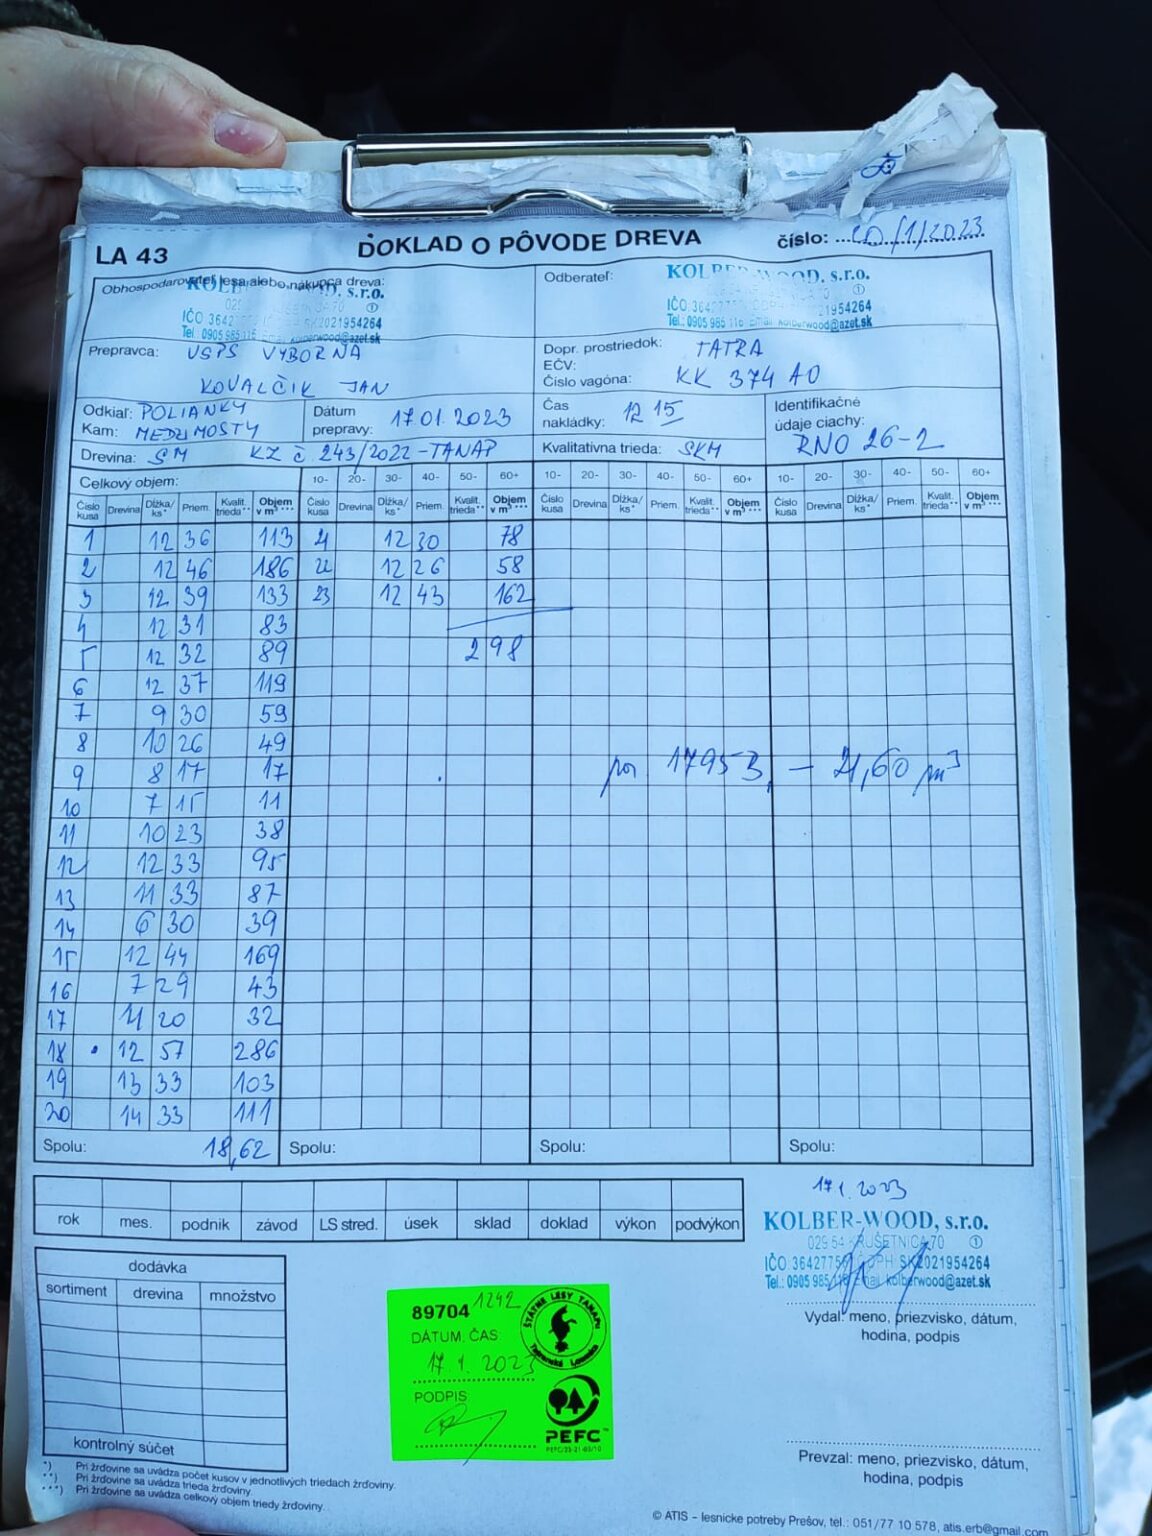 LA 43
DOKLAD O PÔVODE DREVA
číslo: 20/1/2023
Obhospodarovateľ lesa alebo nákupca dreva:
KOLBER-WOOD, s.r.o.
IČO 3642775 SK2021954264
Tel.: 0905 985 116 Email kolberwood@azet.sk
Odberateľ:
KOLBER-WOOD, s.r.o.
IČO 3642775 21954264
Tel.: 0905 985 116 Email kolberwood@azet.sk
Prepravca: USPS VYBORNA
KOVALČIK JAN
Dopr. prostriedok: TATRA
EČV:
Číslo vagóna: KK 374 AO
Odkiaľ: POLIANKY
Kam: MEDZIMOSTY
Dátum prepravy: 17.01.2023
Čas nakládky: 12 15
Identifikačné údaje ciachy:
RNO 26-2
Drevina: SM KZ č 243/2022-TANAP
Kvalitatívna trieda: SKM
Celkový objem:
10- 20- 30- 40- 50- 60+ 10- 20- 30- 40- 50- 60+ 10- 20- 30- 40- 50- 60+
Číslo kusa Drevina Dĺžka/ks* Priem. Kvalit. trieda** Objem v m³ *** Číslo kusa Drevina Dĺžka/ks* Priem. Kvalit. trieda** Objem v m³ *** Číslo kusa Drevina Dĺžka/ks* Priem. Kvalit. trieda** Objem v m³ *** Číslo kusa Drevina Dĺžka/ks* Priem. Kvalit. trieda** Objem v m³ ***
1 12 36 113 21 12 30 78
2 12 46 186 22 12 26 58
3 12 39 133 23 12 43 162
4 12 31 83
5 12 32 89 298
6 12 37 119
7 9 30 59
8 10 26 49
9 8 17 17 1795 21,60 m³
10 7 15 11
11 10 23 38
12 12 33 95
13 11 33 87
14 6 30 39
15 12 44 169
16 7 29 43
17 11 20 32
18 12 57 286
19 13 33 103
20 14 33 111
Spolu: 18,62 Spolu: Spolu: Spolu:
rok mes. podnik závod LS stred. úsek sklad doklad výkon podvýkon
17.1.2023
KOLBER-WOOD, s.r.o.
029 54 KRUŠETNICA 70 1
IČO 3642775 DPH SK2021954264
Tel.: 0905 985 116 Email kolberwood@azet.sk
Vydal: meno, priezvisko, dátum,
hodina, podpis
dodávka
sortiment drevina množstvo
kontrolný súčet
89704 1242
DÁTUM, ČAS
17. 1. 2023
PODPIS
ŠTÁTNE LESY TANAPU
Tatranská Lomnica
PEFC™
PEFC/23-21-03/10
Prevzal: meno, priezvisko, dátum,
hodina, podpis
*) Pri žrďovine sa uvádza počet kusov v jednotlivých triedach žrďoviny.
**) Pri žrďovine sa uvádza trieda žrďoviny.
***) Pri žrďovine sa uvádza celkový objem triedy žrďoviny.
© ATIS – lesnícke potreby Prešov, tel.: 051/77 10 578, atis.erb@gmail.com